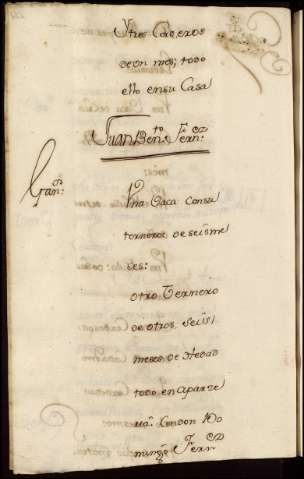 Otros Corderos
de un mes; todo
ello en su Casa
Juan Ben.to Fern.z
Gan.do
Vna Baca con su
ternero de seis me
ses:
otro Ternero
de otros seis
meses de Hedad
todo en Aparze
ria con Don Do
mingo Fern.z